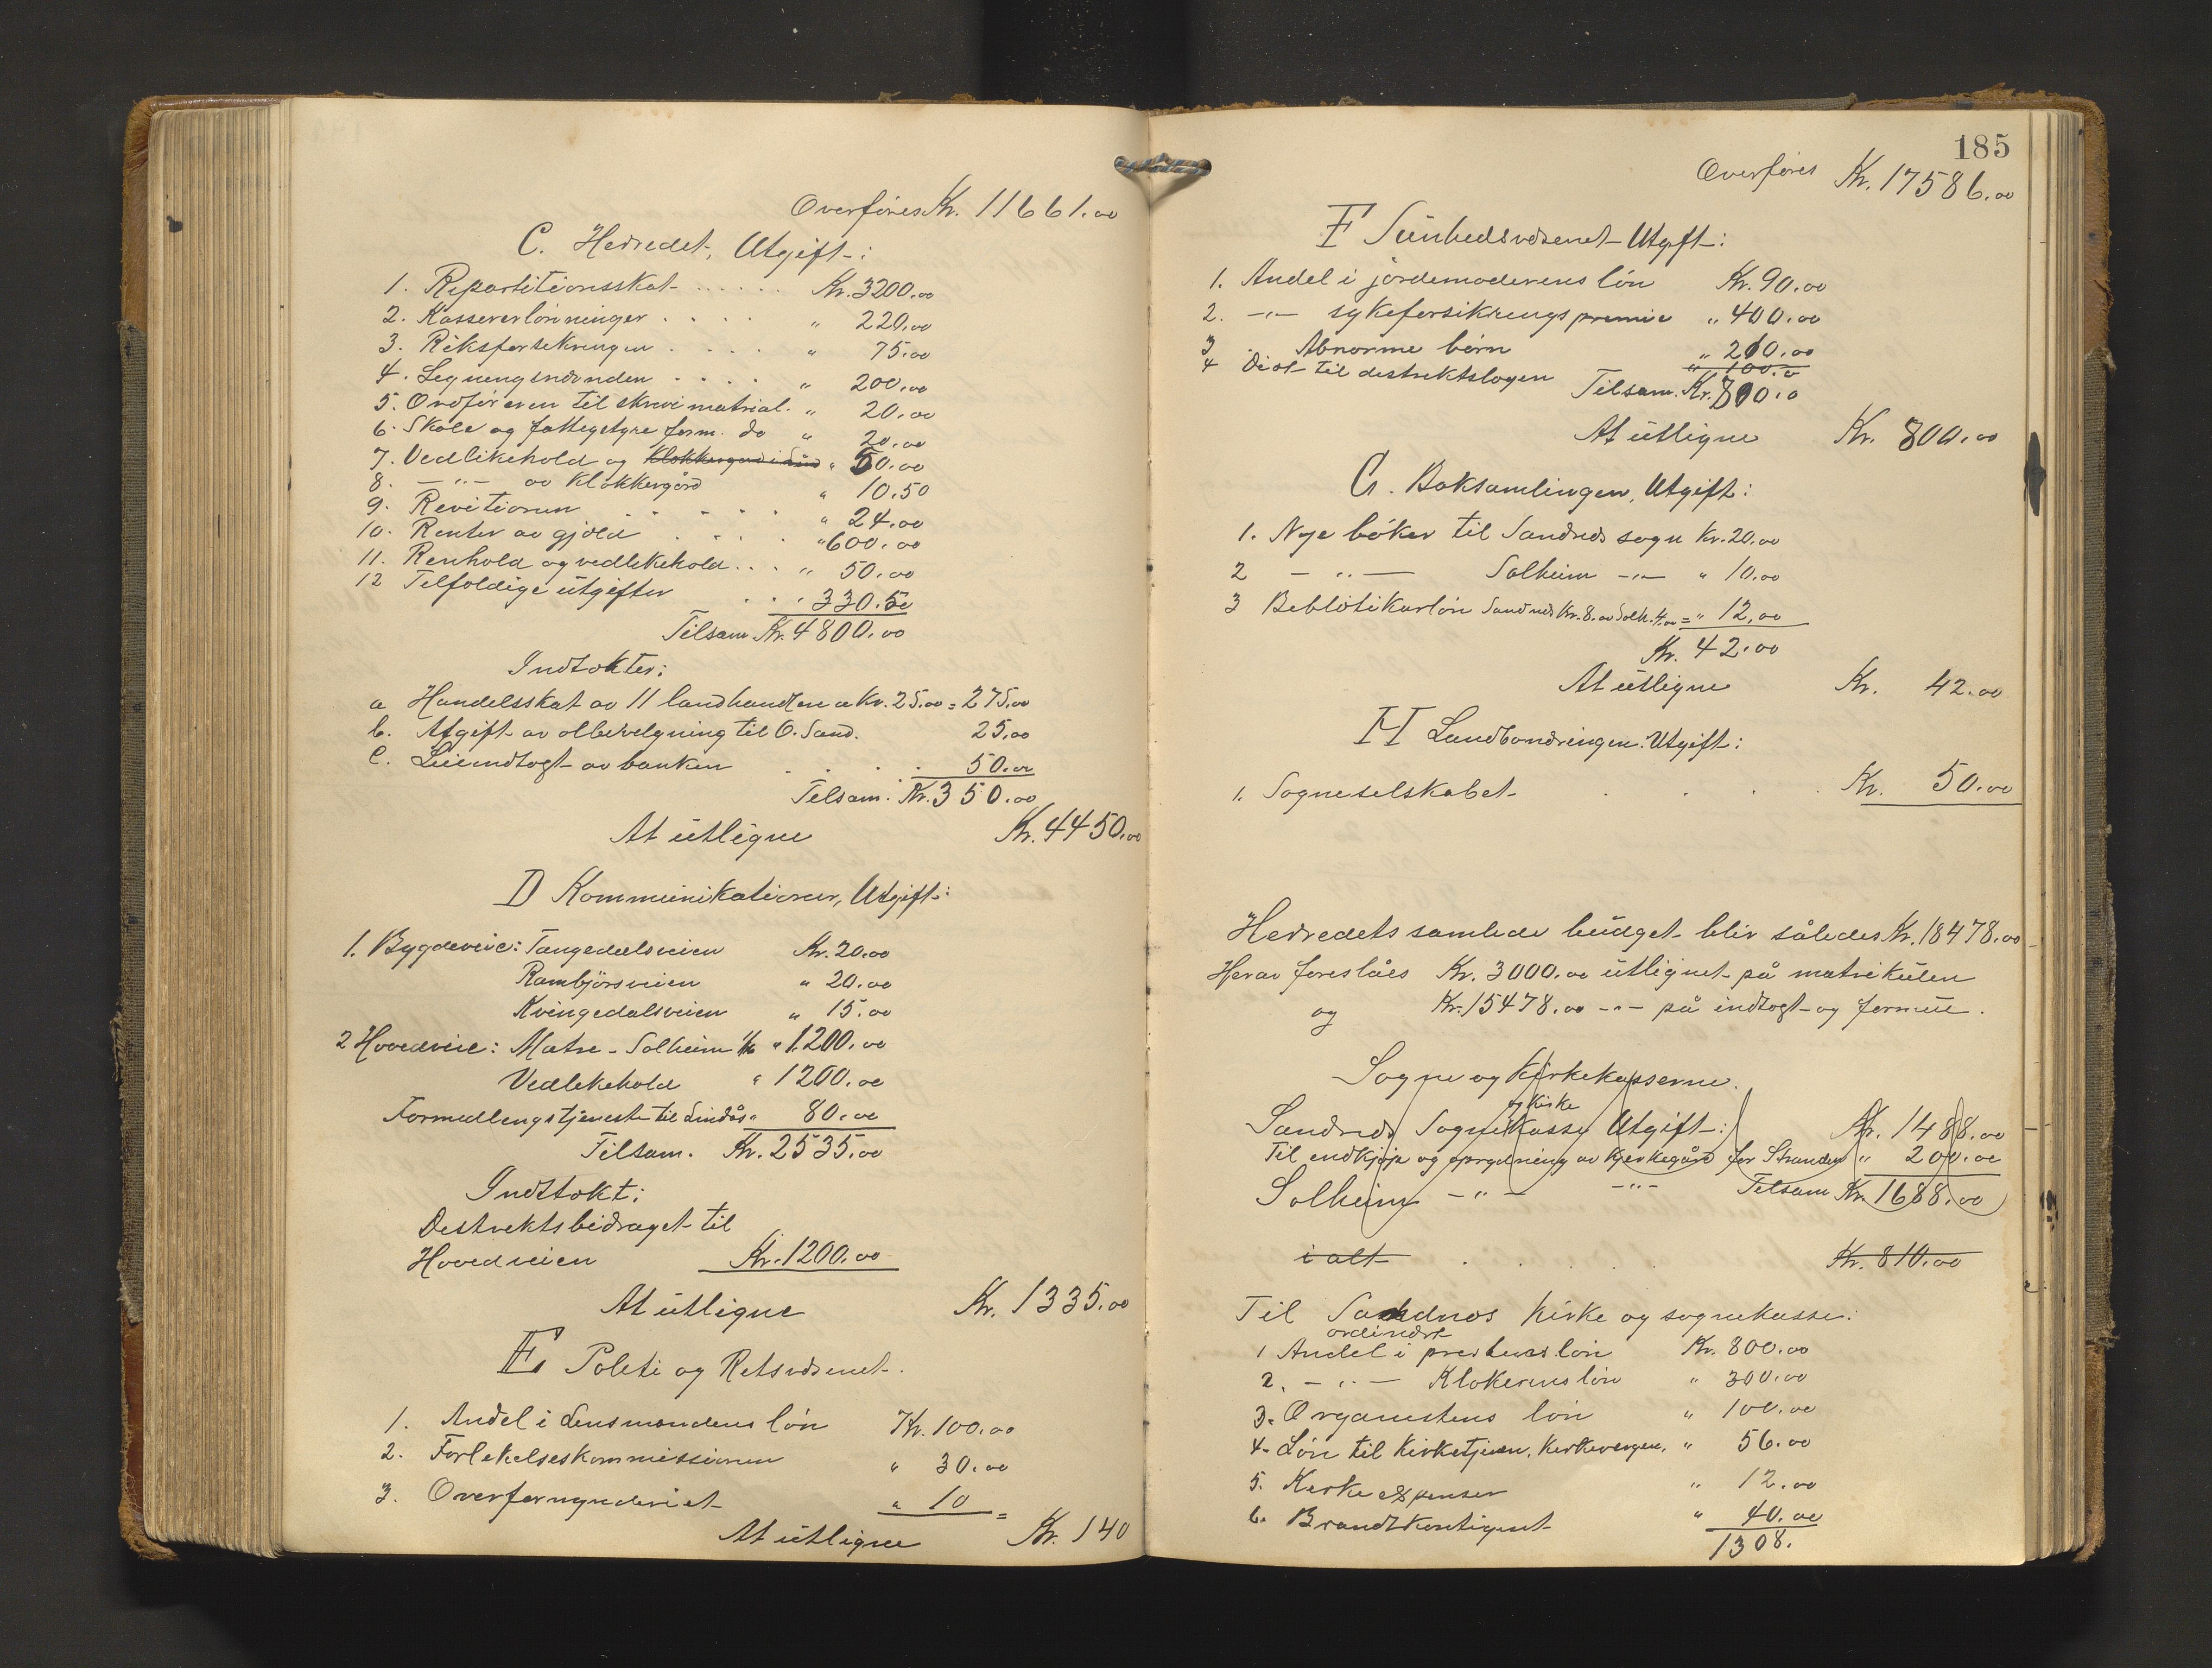 Overføres Kr. 11661.00
C. Herredet, Utgift:
1. Repartitionsskat . . . . . Kr. 3200.00
2. Kassererlønninger . . . . " 220.00
3. Riksforsekringen . . . . " 75.00
4. Legningsnevnden . . . . " 200.00
5. Ordføreren til skrivematrial. " 20.00
6. Skole og fattigstyre form. do " 20.00
7. Vedlikehold og Klokkergård i Lind " 50.00
8. –"– av Klokkergård " 10.50
9. Revitionen . . . . . " 24.00
10. Renter av gjæld . . . . "600.00
11. Renhold og vedlikehold . . . " 50.00
12 Tilfældige utgifter . . . 330.50
Tilsam. Kr. 4800.00
Indtekter:
a Handelsskat av 11 landhandlere a Kr. 25.00 = 275.00
b. Afgift av ølbevilgning til O. Sand. 25.00
c. Leiendtægt av banken . . . . 50.00
Tilsam. Kr. 350.00
At utligne Kr. 4450.00
D Kommunikationer, Utgift:
1. Bygdeveie: Tangedalsveien Kr. 20.00
Rambjørsveien " 20.00
Kvingedalsveien " 15.00
2 Hovedveie: Matre - Solheim " 1200.00
Vedlekehold " 1200.00
Formedlengstjeneste til Lindås " 80.00
Tilsam. Kr. 2535.00
Indtekt:
Destrektsbidraget til
Hovedveien Kr. 1200.00
At utligne Kr. 1335.00
E Politi og Retsvæsenet.
1. Andel i Lensmandens løn Kr. 100.00
2. Forlekelseskommissionen " 30.00
3. Overformynderiet " 10 =
At utligne Kr. 140
185
Overføres Kr. 17586.00
F Sunhedsvæsenet Utgift:
1. Andel i jordemoderens løn Kr. 90.00
2. –"– sykeforsikrings premie " 400.00
3 Abnorme børn " 210.00
4 Diæt til destriktslægen " 100.0
Tilsam. Kr. 800.0
At utligne Kr. 800.00
G. Boksamlingen, Utgift:
1. Nye bøker til Sandnes sogn Kr. 20.00
2 –"– Solheim –"– " 10.00
3 Beblotikarløn Sandnes Kr. 8.00 Solh. 4.00 = " 12.00
Kr. 42.00
At utligne Kr. 42.00
H Landbondringen. Utgift:
1. Sogneselskabet . . . Kr. 50.00
Herredets samlede budget blir således Kr. 18478.00
Herav foreslåes Kr. 3000.00 utlignet på matrikulen
og Kr. 15478.00 –"– på indtægt og formue.
Sogne og Kirkekasserne.
og Kirke
Sandnes Sognekasse Utgift: Kr. 1488.00
Til endkjøp og oprydning av Kjerkegård for Stranden " 200.00
Solheim –"– –"– Tilsam Kr. 1688.00
i alt . . . . Kr. 810.00
Til Sandnes Kirke og sognekasse:
ordinære
1 Andel i prestens løn Kr. 800.00
2. –"– Klokerens løn " 300.00
3. Organistens løn " 100.00
4. Løn til Kirketjener, Kirkevergen, " 56.00
5. Kerke expenser " 12.00
6. Brandtkontigent " 40.00
1308.